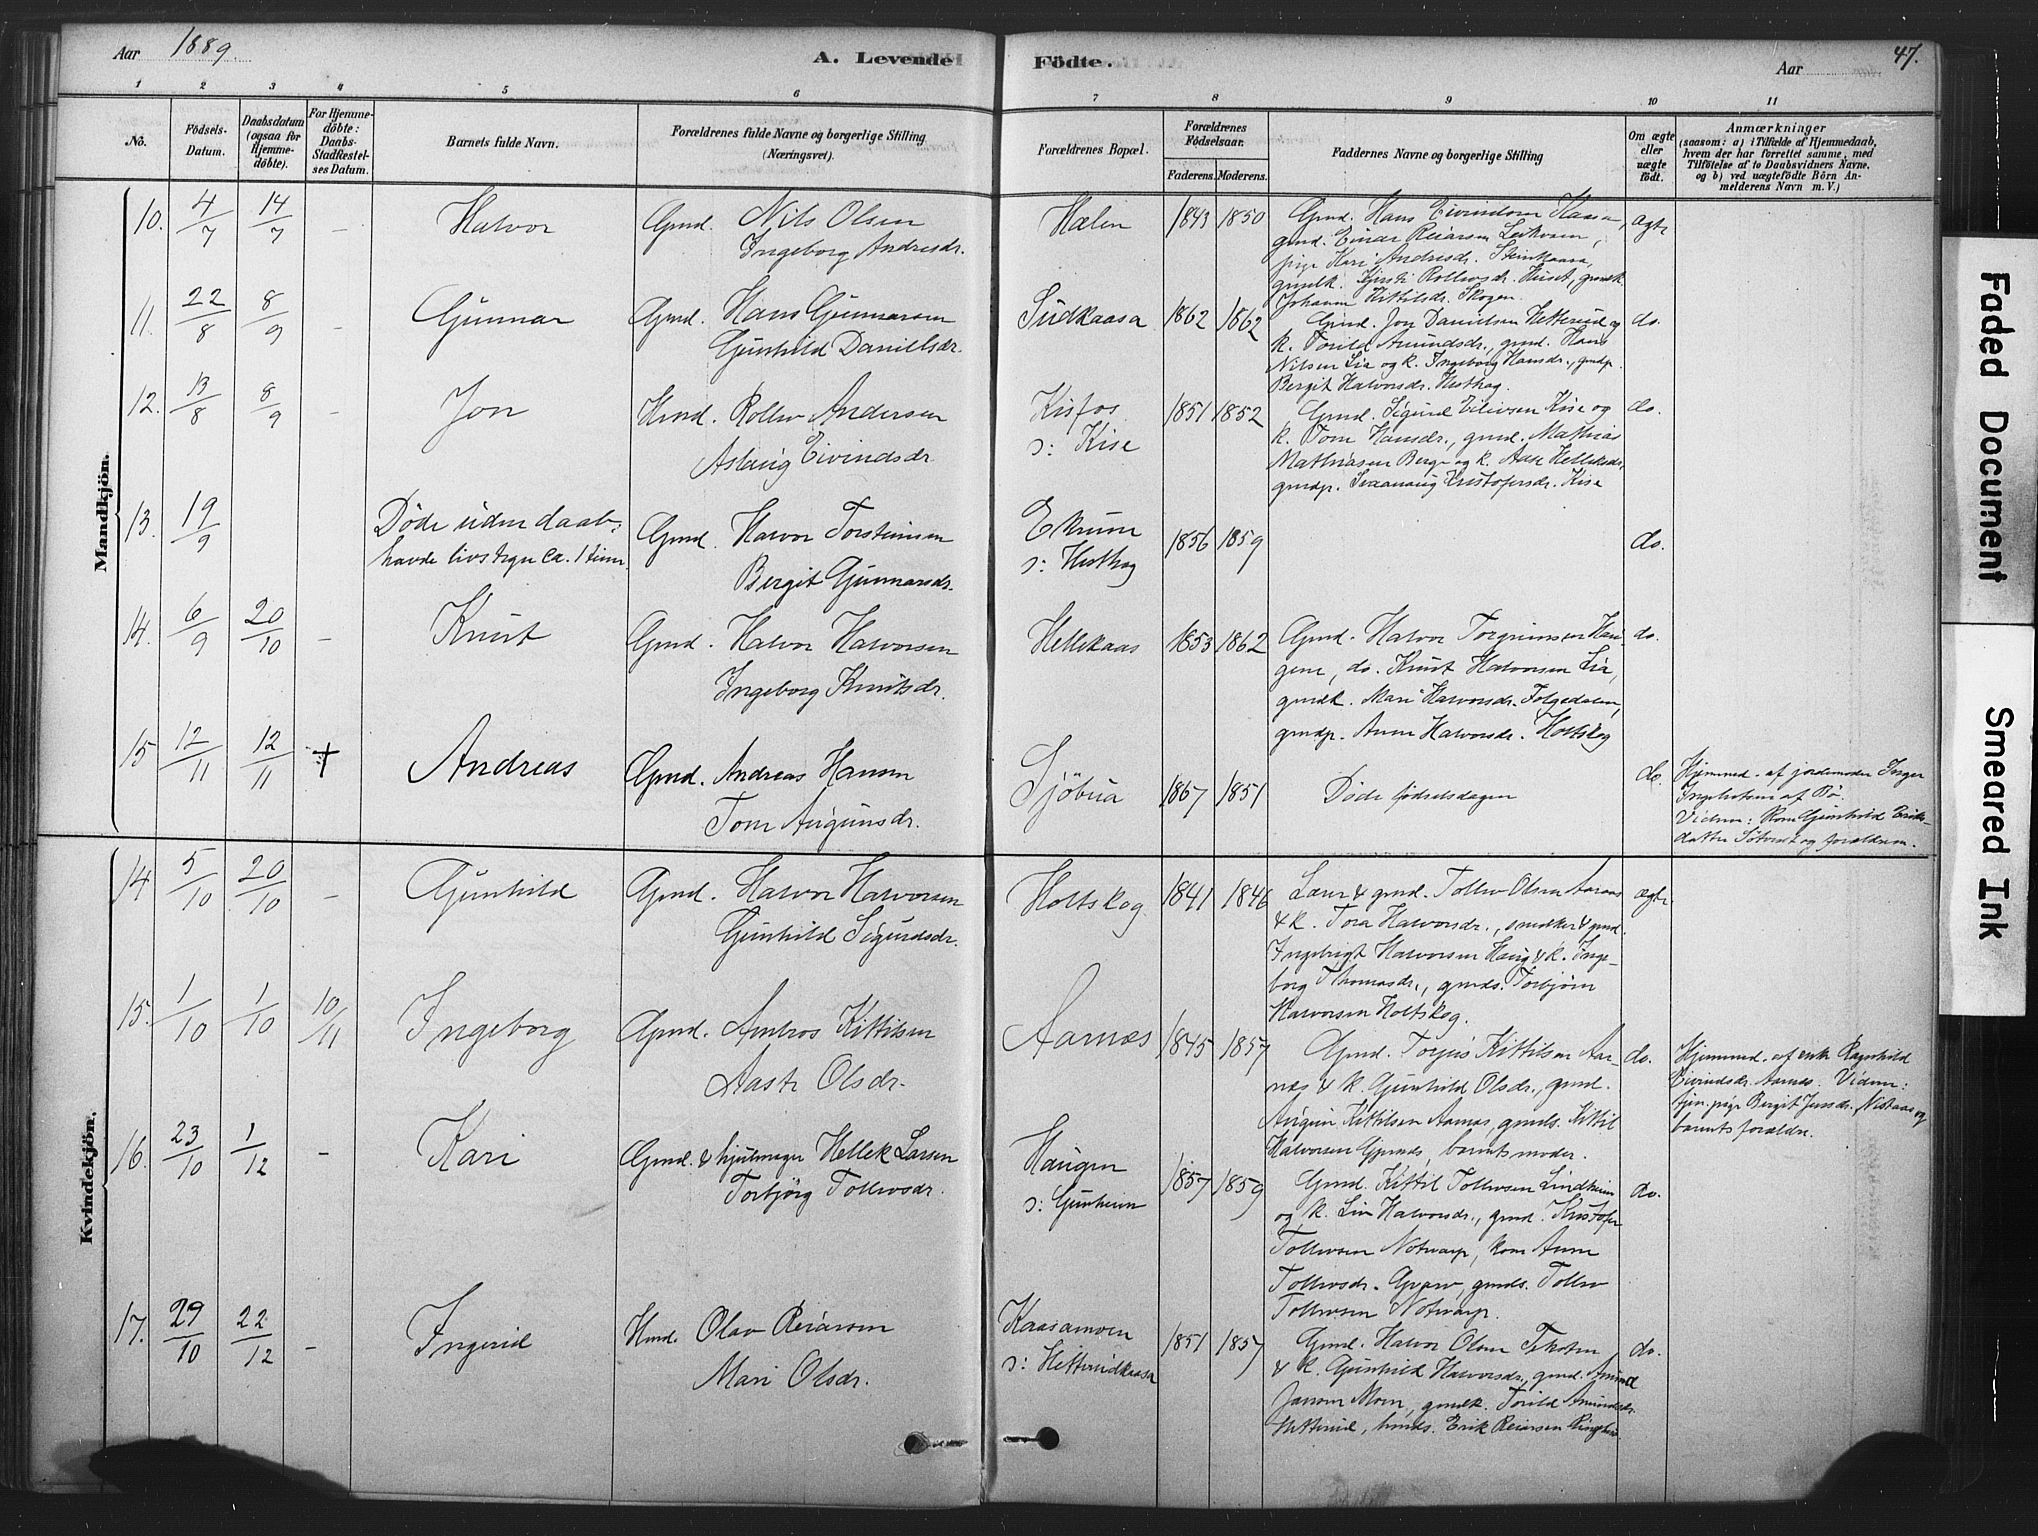 Aar 1889.
A. Levende Födte.
Aar
47.
1 2 3 4 5 6 7 8 9 10 11
No.
Födsels-Datum.
Daabsdatum (ogsaa for Hjemme-döbte).
For Hjemme-döbte: Daabs-Stadfæstel-ses Datum.
Barnets fulde Navn.
Forældrenes fulde Navne og borgerlige Stilling (Næringsvei).
Forældrenes Bopæl.
Forældrenes Födselsaar.
Faderens. Moderens.
Faddernes Navne og borgerlige Stilling
Om ægte eller uægte födt.
Anmærkninger
(saasom: a) i Tilfælde af Hjemmedaab,
hvem der har forrettet samme, med
Tilföielse af to Daabsvidners Navne.
og b) ved uægtefödte Börn An-
melderens Navn m. V.)
Mandkjön.
10. 4/7 14/7 - Halvor
Gmd. Nils Olsen
Ingeborg Andresdr.
Hælen 1843 1850
Gmd. Hans Eivindsen Kaasa,
gmd. Einar Reiarsen Leikvam,
pige Kari Andresdr. Steinkaasa,
gmdk. Kjersti Rollevsdr. Huset, gmdk.
Johanne Kittilsdr. Skogen.
ægte
11. 22/8 8/9 - Gunnar
Gmd. Hans Gunnarsen
Gunhild Danielsdr.
Sudkaasa 1862 1862
Gmd. Jon Danielsen Hetterud og
k. Torild Amundsdr., gmd. Hans
Nilsen Lia og k. Ingeborg Hansdr., gmdp.
Bergit Halvorsdr. Hesthag.
do.
12. 13/8 8/9 - Jon
Hmd. Rollev Andersen
Aslaug Eivindsdr
Kisfos
s: Kise 1851 1852
Gmd. Sigurd Eilivsen Kise og
k. Tone Hansdr., gmd. Mathias
Mathiasen Berge og k. Aase Helleksdr,
gmdp. Svanaug Kristofersdr. Kise
do.
13. 19/9 Döde uden daab,
havde livstegn ca. 1 time.
Gmd. Halvor Torsteinsen
Bergit Gunnarsdr.
Ekrum
s: Hesthag 1856 1859 do.
14. 6/9 20/10 - Knut
Gmd. Halvor Halvorsen
Ingeborg Knutsdr.
Hellekaas 1853 1862
Gmd. Halvor Torgrimsen Hau-
gene, do. Knut Halvorsen Lia,
gmdk. Mari Halvorsdr. Folgedalen,
gmdp. Anne Halvorsdr. Holtskog
do.
15 12/11 12/11 + Andreas
Gmd. Andreas Hansen
Tone Augunsdr.
Sjöbua 1867 1851
Döde födselsdagen
do.
Hjemmed. af jordemoder Inger
Ingebretsen af Bö.
Vidner: Kone Gunhild Eriks-
datter Sötveit og forældrene.
Kvindekjön.
14. 5/10 20/10 - Gunhild
Gmd. Halvor Halvorsen
Gunhild Sigurdsdr.
Holtskog 1841 1846
Lærer & gmd. Tollev Olsen Aarnæs
& k. Tora Halvorsdr., snedker & gmd.
Ingebrigt Halvorsen Haug & k. Inge-
borg Thomasdr., gmds. Torbjörn
Halvorsen Holtskog.
ægte
15. 1/10 1/10 10/11 Ingeborg
Gmd. Ambros Kittilsen
Aaste Olsdr.
Aarnæs 1845 1857
Gmd. Torjus Kittilsen Aar-
næs & k. Gunhild Olsdr., gmd.
Augun Kittilsen Aarnæs, gmds. Kittil
Halvorsen barnets moder.
do.
Hjemmed. af enke Ragnhild
Eivindsdr. Aarnæs. Vidner:
tjen. pige Bergit Jensdr. Nistaas og
barnets forældre.
16. 23/10 1/12 - Kari
Gmd. & hjulmager Hellek Larsen
Torbjörg Tollevsdr.
Haugen
s: Gunheim 1857 1859
Gmd. Kittil Tollevsen Lindheim
og k. Liv Halvorsdr., gmd. Kristofer
Tollevsen Notvarp, kone Anne
Tollevsdr. Gvarv, gmds. Tollev
Tollevsen Notvarp.
do.
17. 29/10 22/12 - Ingerid
Hmd. Olav Reiarsen
Mari Olsdr.
Kaasamoen
s: Hetterudkaasa 1851 1857
Gmd. Halvor Olsen
& k. Gunhild Halvorsdr., gmd. Amund
Jansen Moen, gmdk. Torild Amundsdr.
Hetterud, hmds. Erik Reiarsen
do.
Faded Document
Smeared Ink